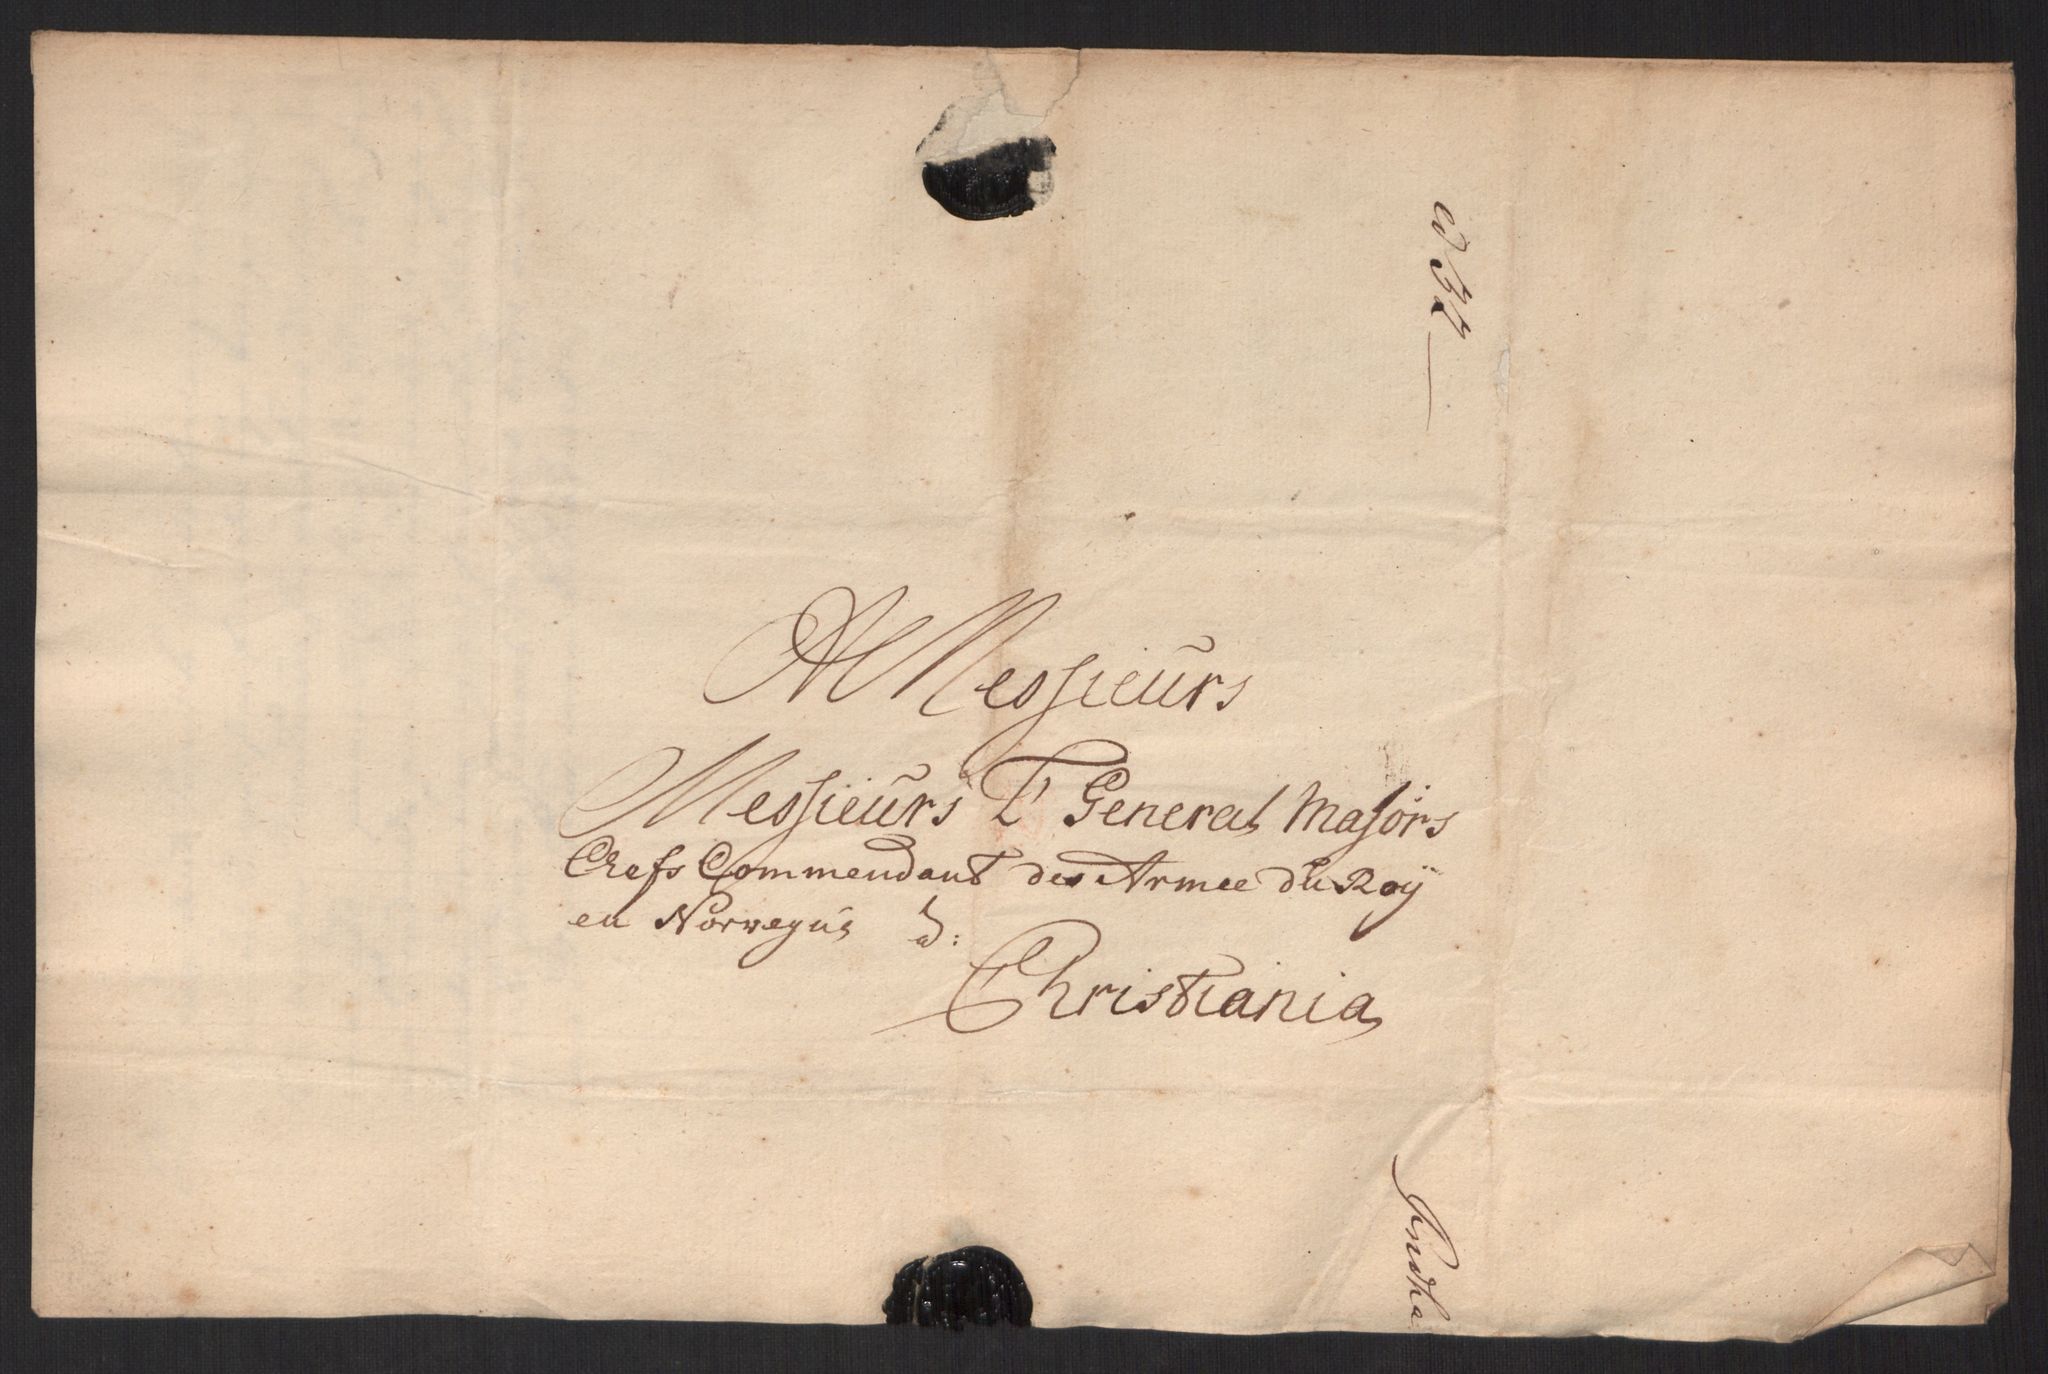 A Messieurs
Messieurs L' General Majors
Chefs Commendant des Armee du Roÿ
en Norvegue a:
Christiania